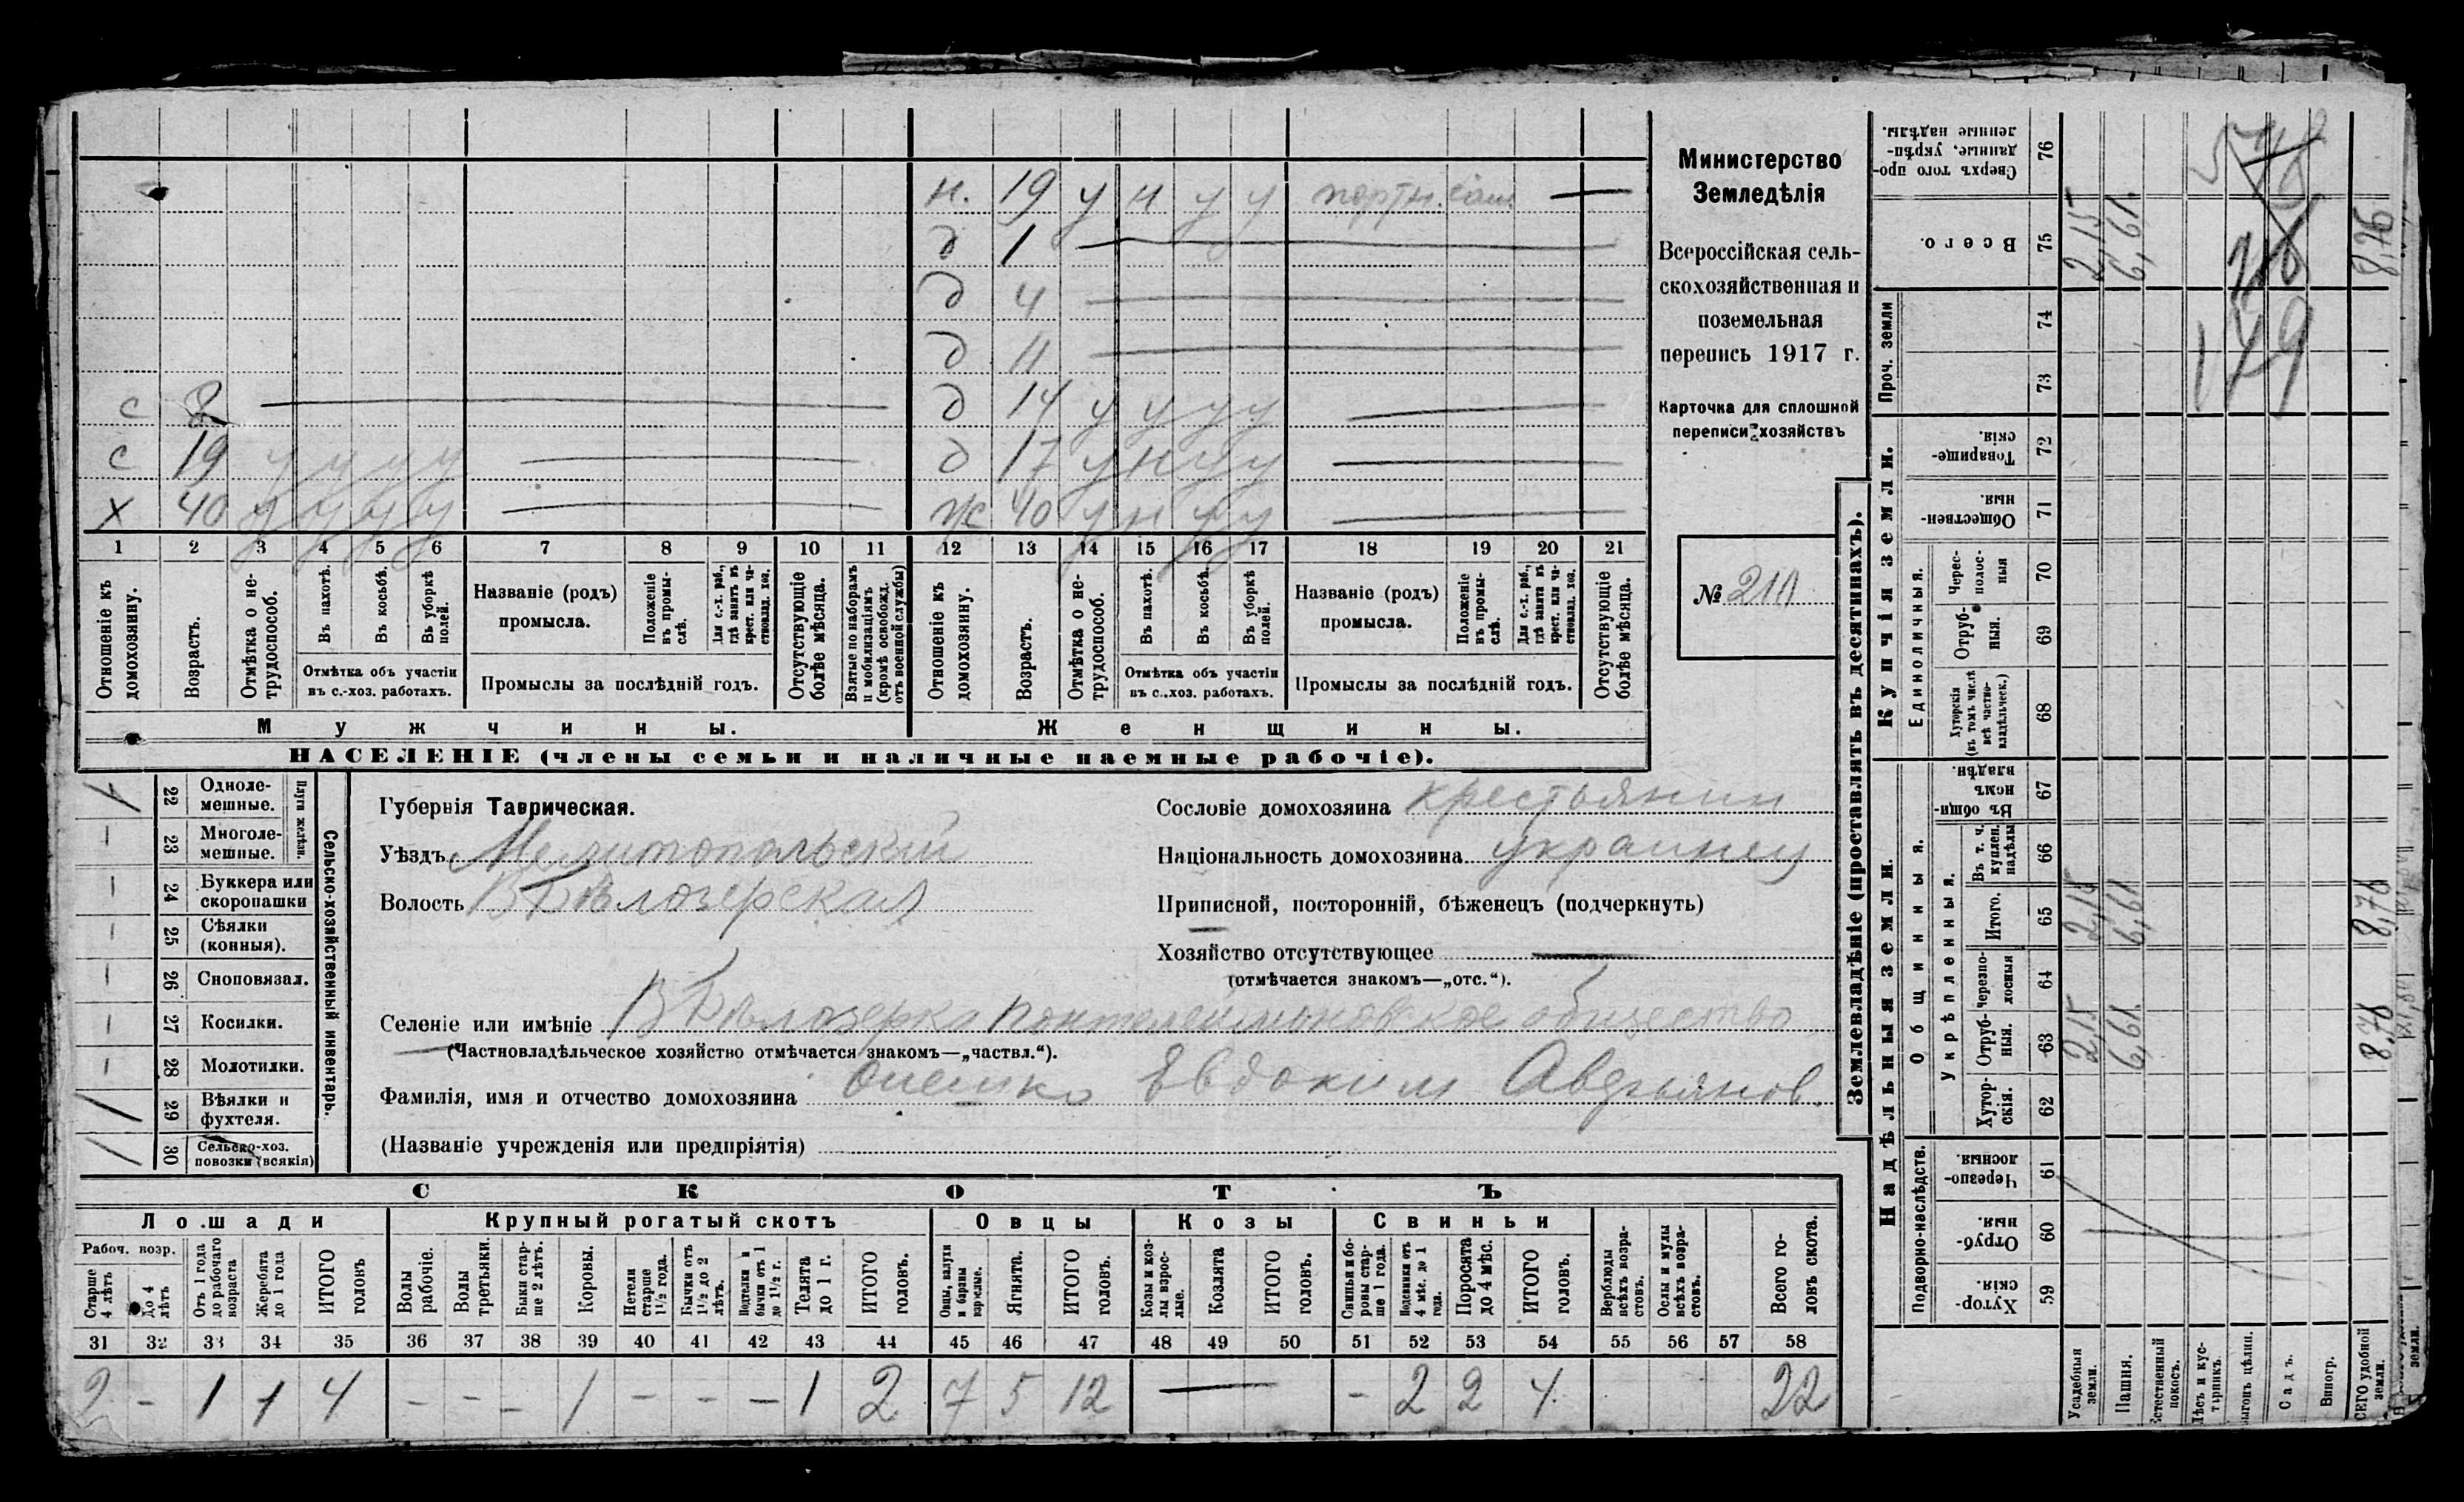 н. 19 у н у у портн. сам. —
д 1 —
д 4 —
д 11 —
с 8 — д 14 у у у у —
с 19 у у у у — д 17 у н у у —
х 40 у у у у — ж 40 у н у у —
1 2 3 4 5 6 7 8 9 10 11 12 13 14 15 16 17 18 19 20 21
Отношеніе къ домохозяину.
Возрастъ.
Отмѣтка о не-трудоспособ.
Въ пахотѣ.
Въ косьбѣ.
Въ уборкѣ полей.
Отмѣтка объ участіи
въ с.-хоз. работахъ.
Названіе (родъ)
промысла.
Положеніе въ промы-слѣ.
Для с.-х. раб., гдѣ занятъ въ крест. или ча-стновлад. хоз.
Промыслы за послѣдній годъ.
Отсутствующіе болѣе мѣсяца.
Взятые по наборамъ и мобилизаціямъ (кромѣ освобожд. отъ военной службы)
Отношеніе къ домохозяину.
Возрастъ.
Отмѣтка о не-трудоспособ.
Въ пахотѣ.
Въ косьбѣ.
Въ уборкѣ полей.
Отмѣтка объ участіи
въ с.-хоз. работахъ.
Названіе (родъ)
промысла.
Положеніе въ промы-слѣ.
Для с.-х. раб., гдѣ занята въ крест. или ча-стновлад. хоз.
Промыслы за послѣдній годъ.
Отсутствующіе болѣе мѣсяца.
Мужчины. Женщины.
НАСЕЛЕНІЕ (члены семьи и наличные наемные рабочіе).
Министерство
Земледѣлія
Всероссійская сель-
скохозяйственная и
поземельная
перепись 1917 г.
Карточка для сплошной
переписи хозяйствъ
№ 210
Сельско-хозяйственный инвентарь.
Плуги желѣзн.
1 22 Одноле-мешные.
— 23 Многоле-мешные.
— 24 Буккера или скоропашки
— 25 Сѣялки (конныя).
— 26 Сноповязал.
— 27 Косилки.
— 28 Молотилки.
1 29 Вѣялки и фухтеля.
1 30 Сельско-хоз. повозки (всякія)
Губернія Таврическая.
Уѣздъ Мелитопольскій
Волость В Бѣлозерская
Сословіе домохозяина крестьянин
Національность домохозяина украинец
Приписной, посторонній, бѣженецъ (подчеркнуть)
Хозяйство отсутствующее —
(отмѣчается знакомъ—„отс.“).
Селеніе или имѣніе В Бѣлозерка Понтелеимоновское общество
(Частновладѣльческое хозяйство отмѣчается знакомъ—„частвл.“).
Фамилія, имя и отчество домохозяина Онешко Евдоким Аверьянов.
(Названіе учрежденія или предпріятія)
СКОТЪ
Лошади Крупный рогатый скотъ Овцы Козы Свиньи
Рабоч. возр.
Старше 4 лѣтъ
до 4 лѣтъ
Отъ 1 года до рабочаго возраста
Жеребята до 1 года
ИТОГО головъ
Волы рабочіе.
Волы третьяки.
Быки стар-ше 2 лѣтъ.
Коровы.
Нетели старше 1½ года.
Бычки отъ 1½ до 2 лѣтъ.
Подтелки и бычки отъ 1 до 1½ г.
Телята до 1 г.
ИТОГО головъ.
Овцы, валухи и бараны взрослые.
Ягнята.
ИТОГО головъ.
Козы и коз-лы взрос-лые.
Козлята
ИТОГО головъ.
Свиньи и бо-ровы стар-ше 1 года.
Подсвинки отъ 4 мѣс. до 1 года.
Поросята до 4 мѣс.
ИТОГО головъ.
Верблюды всѣхъ возра-стовъ.
Ослы и мулы всѣхъ возра-стовъ.
Всего го-ловъ скота.
31 32 33 34 35 36 37 38 39 40 41 42 43 44 45 46 47 48 49 50 51 52 53 54 55 56 57 58
2 - 1 1 4 - - - 1 - - - 1 2 7 5 12 — - 2 2 4 22
Землевладѣніе (проставлять въ десятинахъ).
Надѣльныя земли. Купчія земли. Проч. земли
Подворно-наслѣдств.
Общинныя.
Укрѣпленныя.
Единоличныя.
Хутор-скія. 59
Отруб-ныя. 60
Черезпо-лосныя. 61
Хутор-скія. 62
Отруб-ныя. 63
Черезпо-лосныя 64
Итого. 65
Въ т. ч. куплен. надѣлы 66
Въ общи-номъ владѣн. 67
Хуторскія (въ томъ числѣ всѣ частно-владѣльческ.) 68
Отруб-ныя. 69
Черес-полос-ныя 70
Обществен-ныя. 71
Товарище-скія. 72
73
74
Всего. 75
Сверхъ того про-данные, укрѣп-ленные надѣлы. 76
Усадебныя земли. 2,15 2,15 2,15
Пашня. 6,61 6,61 6,61
Естественный покосъ.
Лѣсъ и кус-тарникъ.
Выгонъ цѣлин.
Садъ.
Виногр.
ВСЕГО удобной земли. 8,76 8,76 8,76
149